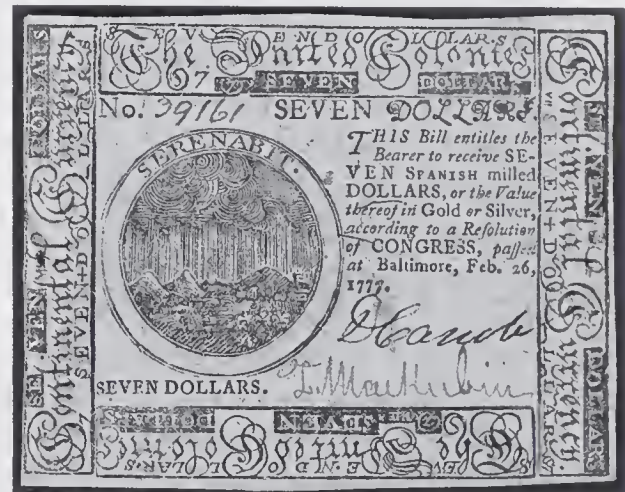 SEVEN DOLLARS
The United Colonies
SEVEN DOLLARS
No. 39161 SEVEN DOLLARS
SERENABIT.
THIS Bill entitles the
Bearer to receive SE-
VEN SPANISH milled
DOLLARS, or the Value
thereof in Gold or Silver,
according to a Resolution
of CONGRESS, passed
at Baltimore, Feb. 26,
1777.
SEVEN DOLLARS.
Continental Currency
SEVEN DOLLARS
SEVEN DOLLARS
Continental Currency.
SEVEN DOLLARS
SEVEN DOLLARS
SEVEN DOLLARS
The United Colonies
SEVEN DOLLARS